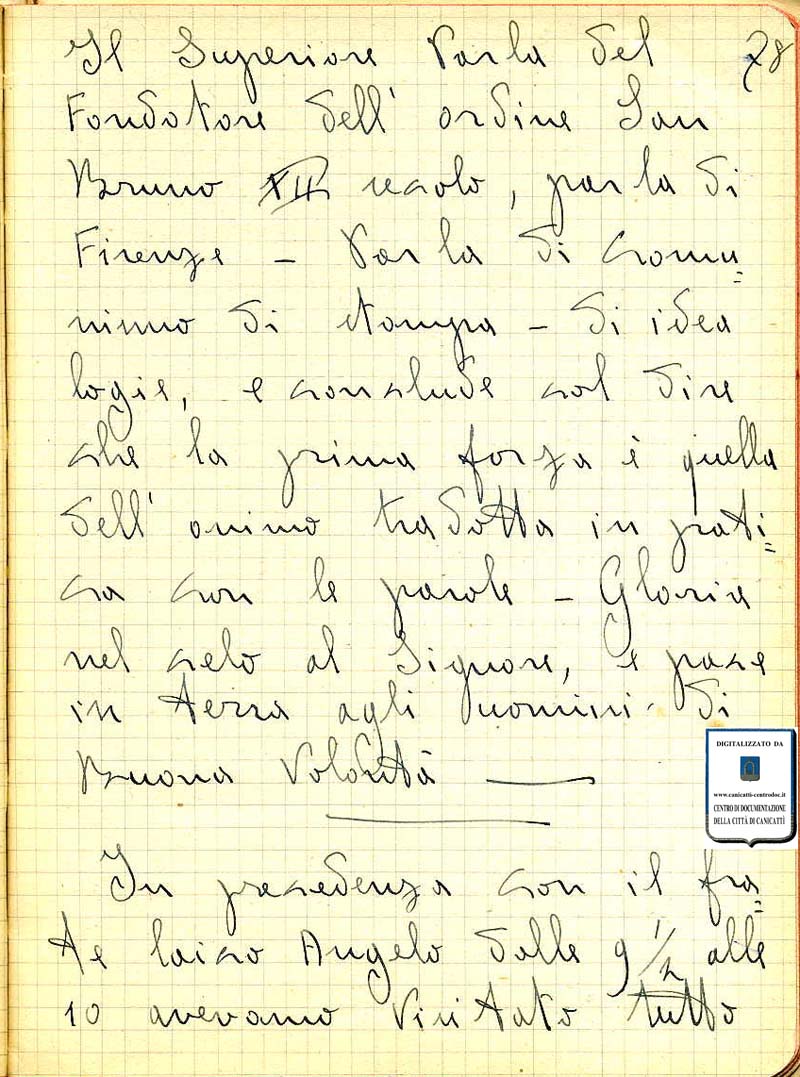 78
Il Superiore Parla del
Fondatore dell' ordine San
Bruno XII secolo, parla di
Firenze - Parla di comu=
nismo di stampa - di idea
logie, e conclude col dire
che la prima forza è quella
dell' animo tradotta in prati=
ca con le parole - Gloria
nel cielo al Signore, e pace
in terra agli uomini di
Buona Volontà
In precedenza con il fra=
te laico Angelo dalle 9 1/2 alle
10 avevamo Visitato tutto
DIGITALIZZATO DA
www.canicatti-centrodoc.it
CENTRO DI DOCUMENTAZIONE
DELLA CITTÀ DI CANICATTÌ